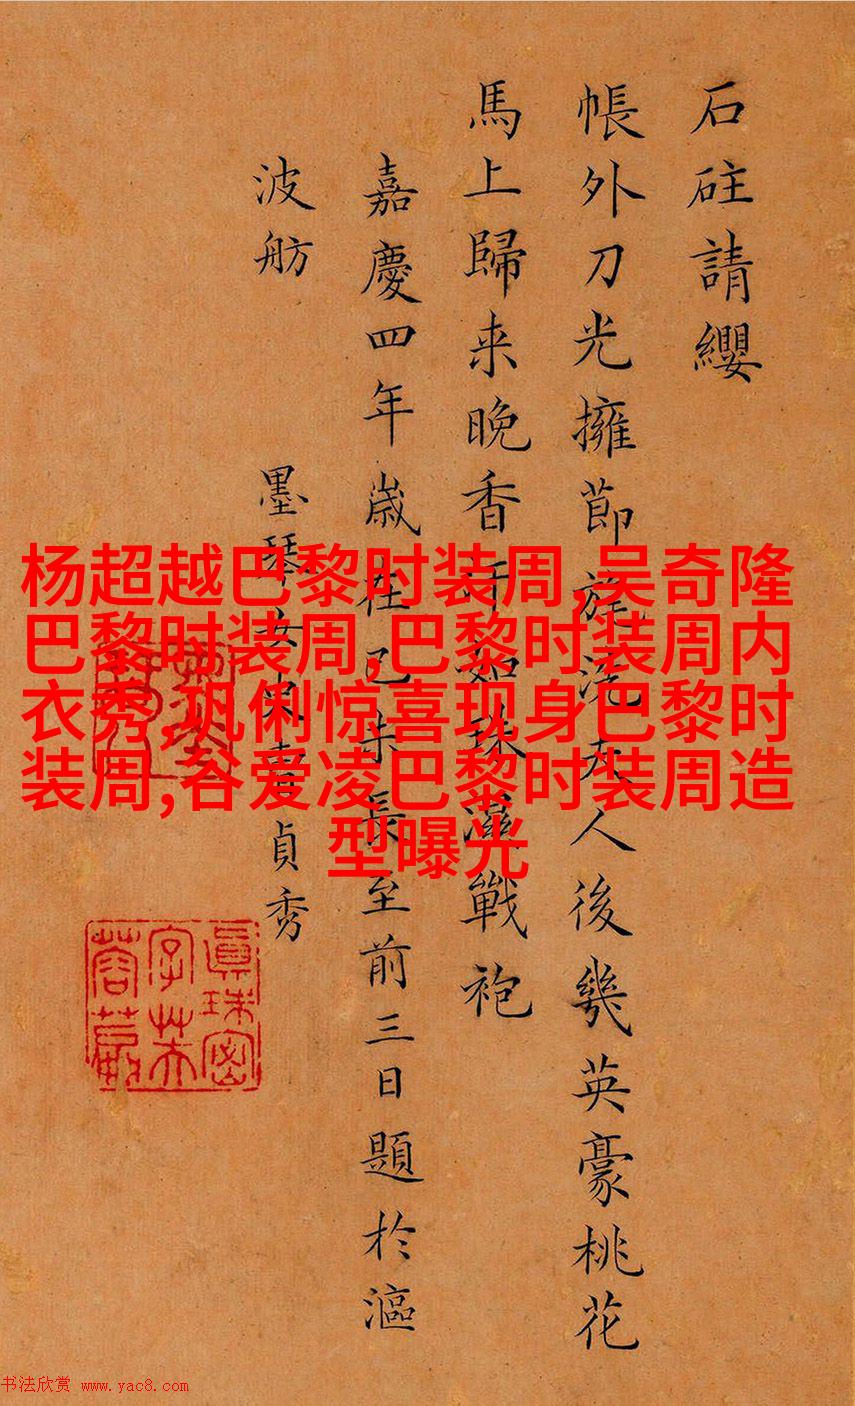 石砫請纓
帳外刀光擁節旄洗夫人後幾英豪桃花
馬上歸来晚香汗如珠濕戰袍
嘉慶四年歲在己未長至前三日題於漚
波舫 墨琴女史曹貞秀
杨超越巴黎时装周,吴奇隆
巴黎时装周,巴黎时装周内
衣秀,巩俐惊喜现身巴黎时
装周,谷爱凌巴黎时装周造
型曝光
真珠密
字芙
蓉
书法欣赏 www.yac8.com